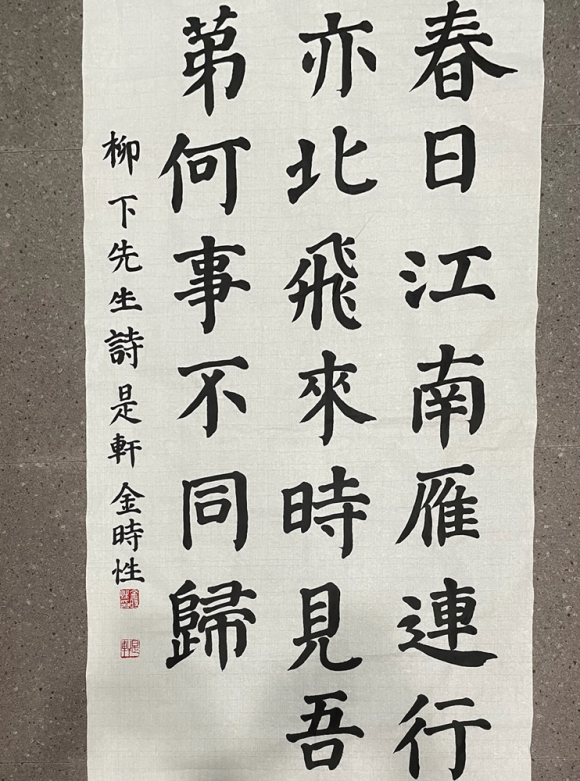 春日江南雁連行
亦北飛來時見吾
苐何事不同歸
柳下先生詩是軒金時性